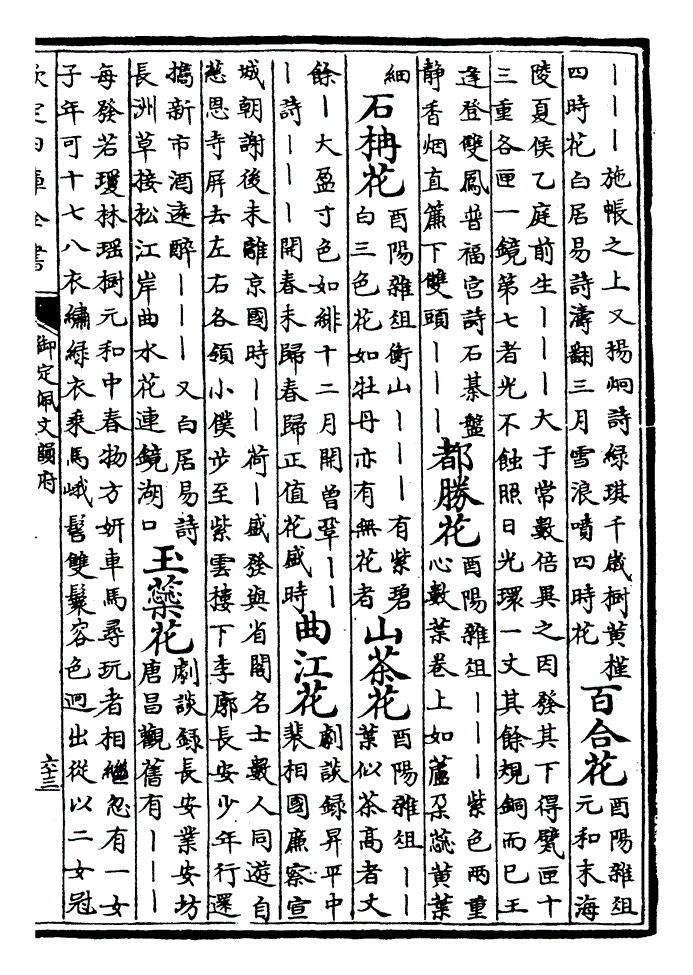 ｜｜｜施帳之上又揚炯詩綠琪千歲樹黃槿
四時花白居易詩濤翻三月雪浪噴四時花
百合花
酉陽雜俎
元和末海
陵夏侯乙庭前生｜｜｜大于常數倍異之因發其下得甓匣十
三重各匣一鏡第七者光不蝕照日光環一丈其餘規銅而已王
逢登雙鳳普福宫詩石棊盤
静香烟直簾下雙頭｜｜｜
都勝花
酉陽雜俎｜｜｜紫色兩重
心數葉卷上如蘆朶蕊黄葉
細
石柟花
酉陽雜俎衡山｜｜｜有紫碧
白三色花如牡丹亦有無花者
山茶花
酉陽雜俎｜｜
葉似茶高者丈
餘｜大盈寸色如緋十二月開曾鞏｜｜
｜詩｜｜｜開春未歸春歸正值花盛時
曲江花
劇談録昇平中
裴相國廉察宣
城朝謝後未離京國時｜｜荷｜盛發與省閣名士數人同遊自
慈恩寺屏去左右各領小僕步至紫雲樓下李廓長安少年行還
擕新市酒遠醉｜｜｜又白居易詩
長洲草接松江岸曲水花連鏡湖口
玉蘂花
劇談録長安業安坊
唐昌觀舊有｜｜｜
每發若瓊林瑶樹元和中春物方妍車馬尋玩者相繼忽有一女
子年可十七八衣繡緑衣乘馬峨髻雙鬟容色迥出從以二女冠
欽定四庫全書
御定佩文韻府
六十三